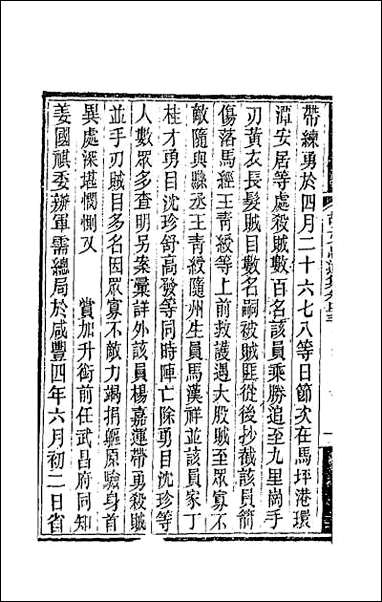 帶練勇於四月二十六七八等日節次在馬坪港環
潭安居等處殺賊數百名該員乘勝追至九里崗手
刃黃衣長髮賊目數名嗣被賊匪從後抄截該員筋
傷落馬經王青綬等上前救護遇大股賊至眾寡不
敵隨與縣丞王青綬隨州生員馬漢祥並該員家丁
桂才勇目沈珍舒高發等同時陣亡除勇目沈珍等
人數眾多查明另案彙詳外該員楊嘉運帶勇殺賊
並手刃賊目多名因眾寡不敵力竭捐軀原驗身首
異處深堪憫惻又　賞加升銜前任武昌府同知
姜國祺委辦軍需總局於咸豐四年六月初二日省